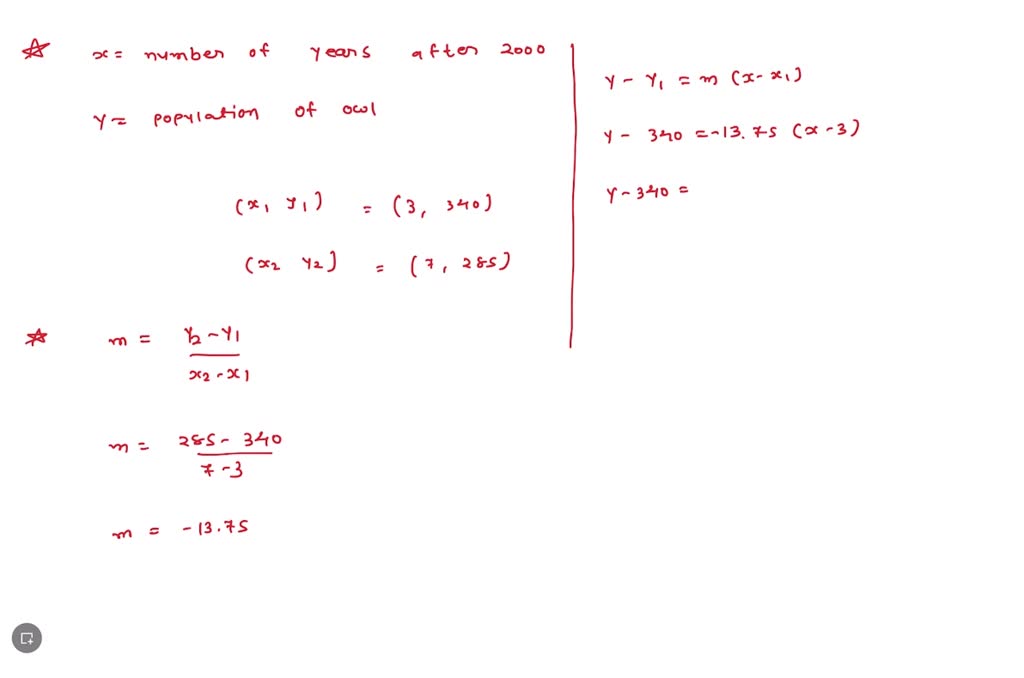 x = number of years after 2000
Y = population of owl
(x1 y1) = (3, 340)
(x2 Y2) = (7, 285)
m = Y2 - Y1 / x2 - x1
m = 285 - 340 / 7 - 3
m = -13.75
Y - Y1 = m (x - x1)
Y - 340 = -13.75 (x - 3)
Y - 340 =